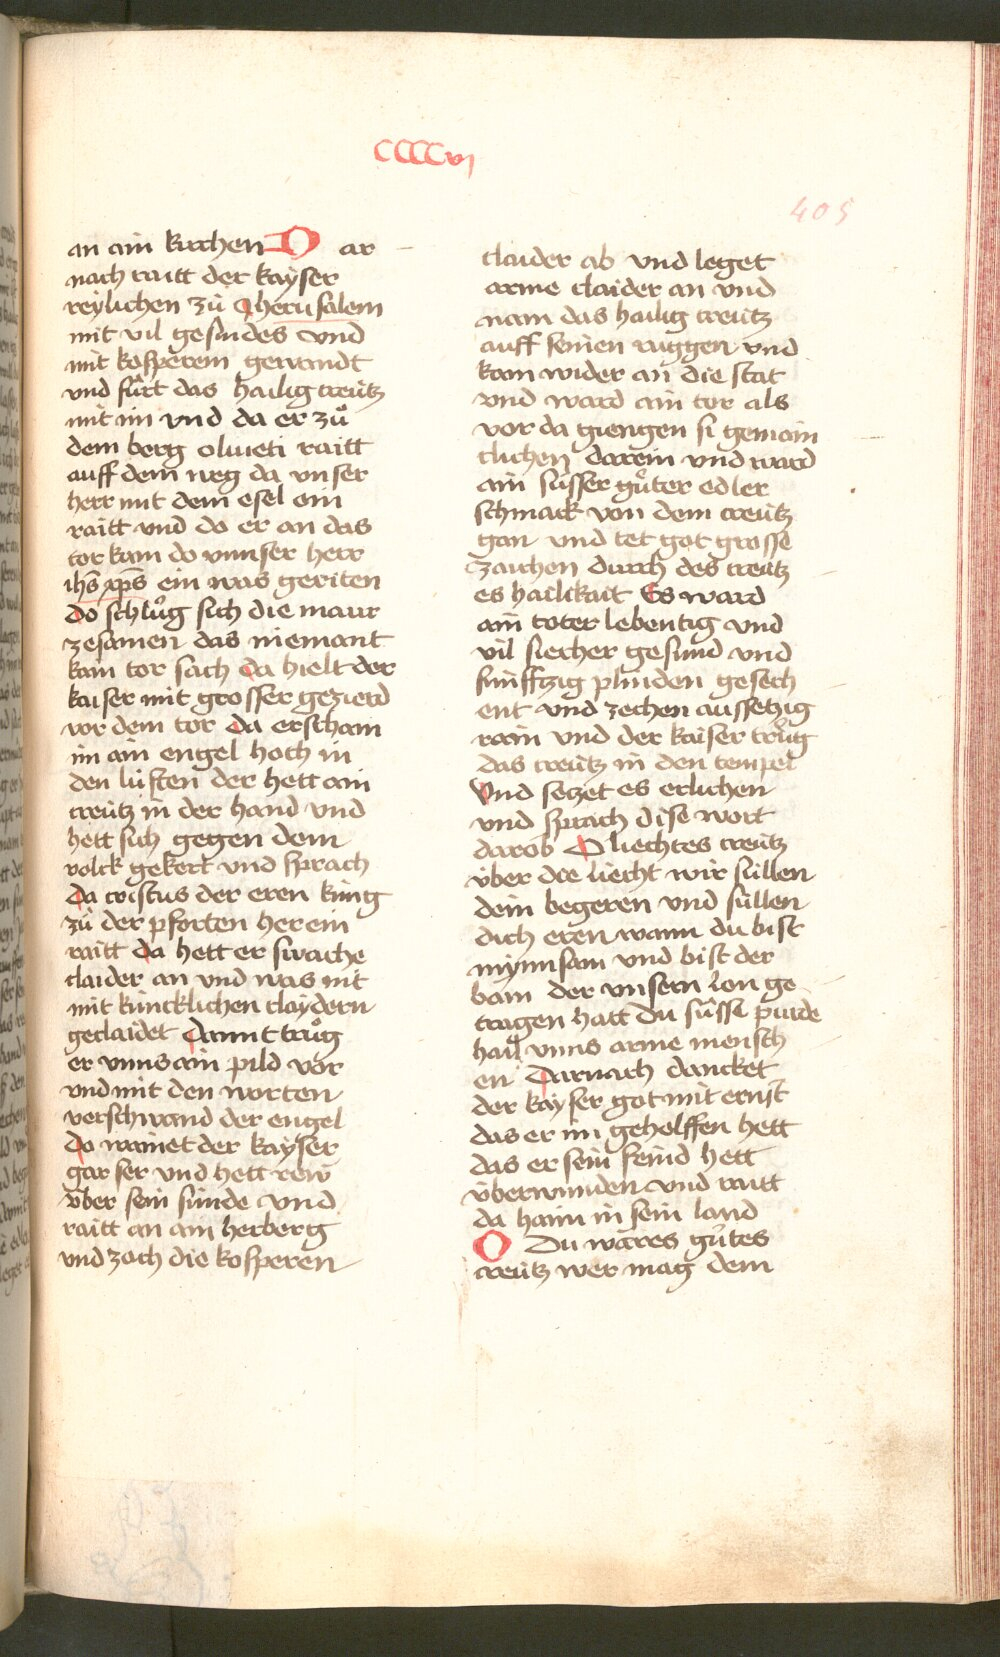 CCCCvj
405
an ain kirchen D ar
nach raitt der kayser
reylichen zů Jherusalem
mit vil gesindes vnd
mit kosperem gewandt
vnd fürt das hailig creütz
mit im vnd da er zů
dem berg oliueti raitt
auff dem weg da vnser
herr mit dem esel ein
raitt vnd do er an das
tor kam do vnnser herr
ihs xps ein was geriten
do schlůg sich die maur
zesamen das niemant
kain tor sach da hielt der
kaiser mit grosser gezierd
vor dem tor da erscham
im ain engel hoch in
den lüften der hett ain
creütz in der hand vnd
hett sich gegen dem
volck gekert vnd sprach
Da cristus der eren küng
zů der pforten herein
raitt da hett er swache
claider an vnd was nit
mit küncklichen claydern
geclaidet damit trůg
er vnns ain pild vor
vnd mit den worten
verschwand der engel
do wainet der kayser
gar ser vnd hett rew
über sein sünde vnd
raitt an ain herberg
vnd zoch die kosperen
claider ab vnd leget
arme claider an vnd
nam das hailig creütz
auff seinen ruggen vnd
kam wider an die stat
vnd ward ain tor als
vor da giengen si gemain
clichen darein vnd ward
ain süsser gůter edler
schmack von dem creütz
gan vnd tet got grosse
zaichen durch des creütz
es hailikait Es ward
ain toter lebentig vnd
vil siecher gesund vnd
fünffzig plinden gesech
ent vnd zechen aussetzig
rain vnd der kaiser trůg
das creütz in den tempel
Vnd setzet es erlichen
vnd sprach dise wort
darob O liechtes creütz
über die liecht wir süllen
dein begeren vnd süllen
dich eren wann du bist
mynnsam vnd bist der
bam der vnsern lon ge
tragen hatt Du süsse purde
hail vnns arme mensch
en Darnach dancket
der kayser got mit ernst
das er im geholffen hett
das er sein feind hett
überwunden vnd raitt
da haim in sein land
O Du wares gůtes
creütz wer mag dem